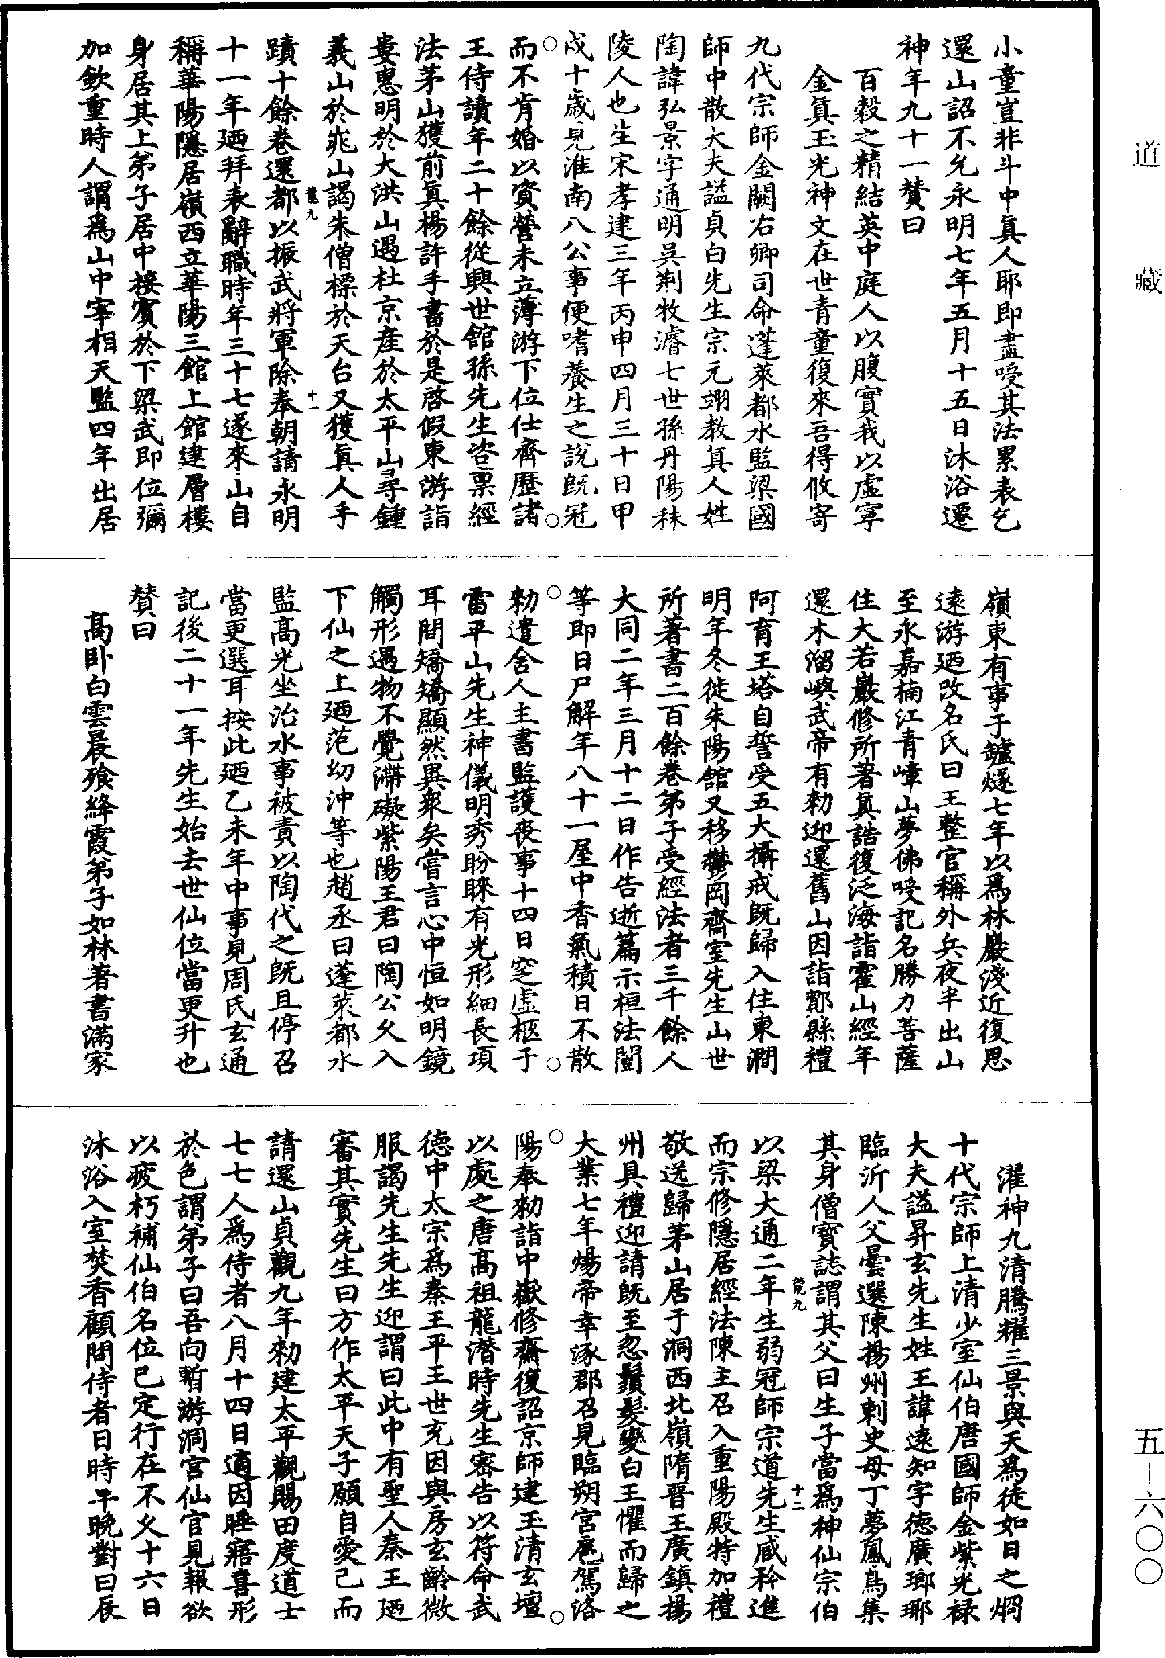 小童豈非斗中真人耶即盡受其法累表乞
還山詔不允永明七年五月十五日沐浴遷
神年九十一贊曰
百穀之精結英中庭人以腹實我以虛寧
金真玉光神文在世青童復來吾得攸寄
九代宗師金闕右卿司命蓬萊都水監梁國
師中散大夫謚貞白先生宗元翊教真人姓
陶諱弘景字通明吳荊牧濬七世孫丹陽秣
陵人也生宋孝建三年丙申四月三十日甲
戌十歲見淮南八公事便嗜養生之說既冠
而不肯婚以資營未立薄游下位仕齊歷諸
王侍讀年二十餘從興世館孫先生咨稟經
法茅山獲前真楊許手書於是啓假東游詣
婁惠明於大洪山遇杜京產於太平山尋鍾
義山於䂖山謁朱僧標於天台又獲真人手
蹟十餘卷還都以振武將軍除奉朝請永明
十一年廼拜表辭職時年三十七遂來山自
稱華陽隱居嶺西立華陽三館上館建層樓
身居其上弟子居中接賓於下梁武即位彌
加欽重時人謂爲山中宰相天監四年出居
嶺東有事于鑪燧七年以爲林巖淺近復思
遠游廼改名氏曰王整官稱外兵夜半出山
至永嘉楠江青嶂山夢佛受記名勝力菩薩
住大若巖修所著真誥復泛海詣霍山經年
還木溜嶼武帝有勑迎還舊山因詣鄮縣禮
阿育王塔自誓受五大攝戒既歸入住東澗
明年冬徙朱陽館又移鬱岡齋室先生山世
所著書二百餘卷弟子受經法者三千餘人
大同二年三月十二日作告逝篇示桓法闓
等即日尸解年八十一屋中香氣積日不散
勑遣舍人主書監護喪事十四日窆虛柩于
雷平山先生神儀明秀盼睞有光形細長項
耳間矯矯顯然異衆矣嘗言心中恒如明鏡
觸形遇物不覺滯礙紫陽王君曰陶公父入
下仙之上廼范幼沖等也趙丞曰蓬萊都水
監高光坐治水事被責以陶代之既且停召
當更選耳按此廼乙未年中事見周氏玄通
記後二十一年先生始去世仙位當更升也
贊曰
高卧白雲晨飱絳霞弟子如林著書滿家
濯神九清騰耀三景與天爲徒如日之烱
十代宗師上清少室仙伯唐國師金紫光祿
大夫謚昇玄先生姓王諱遠知字德廣瑯琊
臨沂人父曇選陳揚州刺史母丁夢鳳鳥集
其身僧寶誌謂其父曰生子當爲神仙宗伯
以梁大通二年生弱冠師宗道先生臧矜進
而宗修隱居經法陳主召入重陽殿特加禮
敬送歸茅山居于洞西北嶺隋晉王廣鎮揚
州具禮迎請既至忽鬚髮變白王懼而歸之
大業七年煬帝幸涿郡召見臨朔宮扈駕洛
陽奉勑詣中嶽修齋復詔京師建玉清玄壇
以處之唐高祖龍潛時先生審告以符命武
德中太宗爲秦王平王世充因與房玄齡微
服謁先生先生迎謂曰此中有聖人秦王廼
審其實先生曰方作太平天子願自愛己而
請還山貞觀九年勑建太平觀賜田度道士
七七人爲侍者八月十四日適因睡寤喜形
於色謂弟子曰吾向暫游洞宮仙官見報欲
以疲朽補仙伯名位已定行在不久十六日
沐浴入室焚香顧問侍者日時早晚對曰辰
龍九
十一
龍九
十二
道藏
五—六〇〇